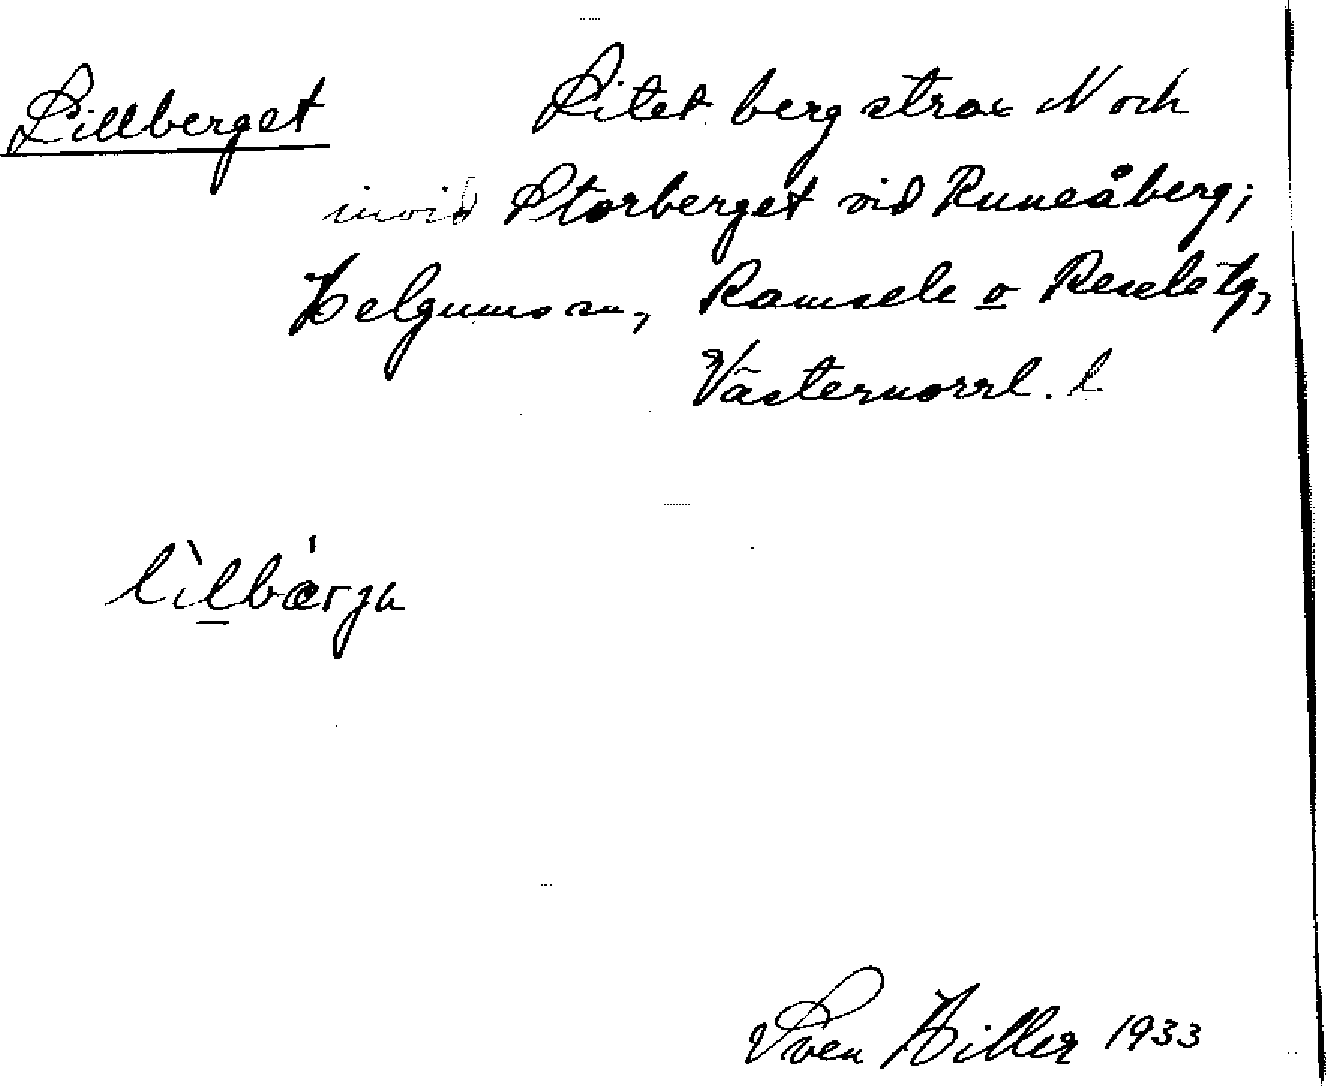 Lillberget Litet berg strax N och
invid Storberget vid Runsåberg;
Helgums sn, Ramsele o Resele tg,
Västernorrl. l.
lìlbærja
Sven Hiller 1933